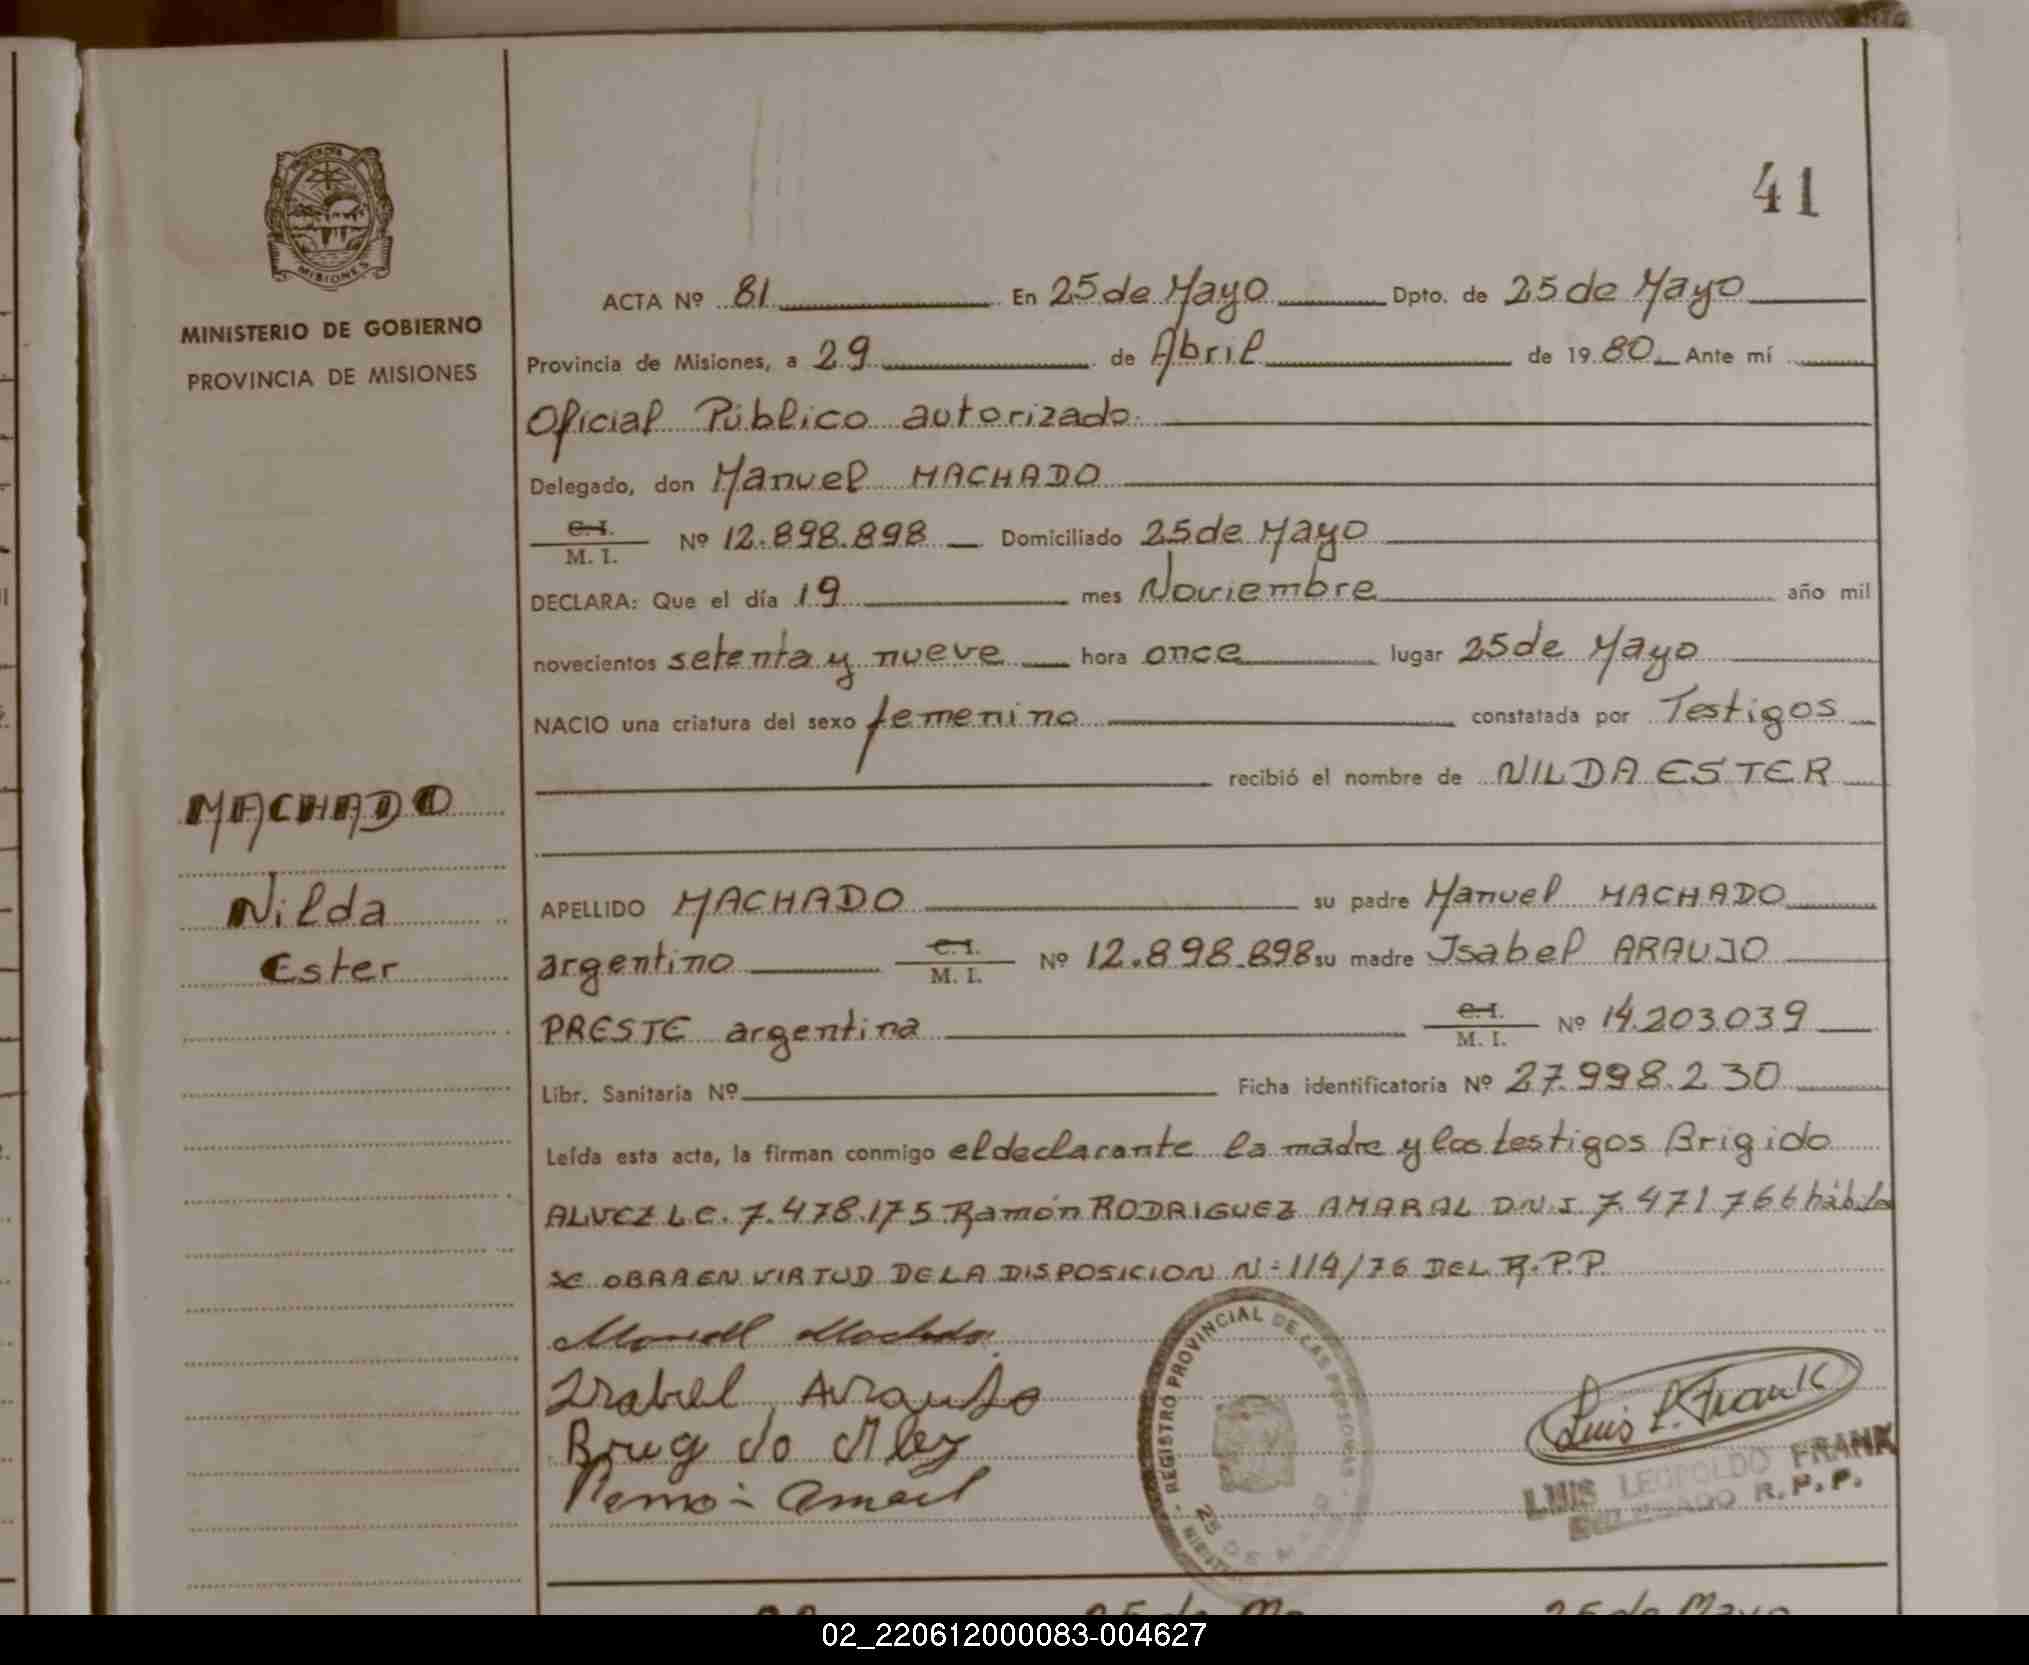 41
PROVINCIA DE
MISIONES
MINISTERIO DE GOBIERNO
PROVINCIA DE MISIONES
MACHADO
Nilda
Ester
ACTA Nº 81 En 25 de Mayo Dpto. de 25 de Mayo
Provincia de Misiones, a 29 de Abril de 1980 Ante mí
Oficial Público autorizado.
Delegado, don Manuel MACHADO
C. I.
M. I. Nº 12.898.898 Domiciliado 25 de Mayo
DECLARA: Que el día 19 mes Noviembre año mil
novecientos setenta y nueve hora once lugar 25 de Mayo
NACIO una criatura del sexo femenino constatada por Testigos
recibió el nombre de NILDA ESTER
APELLIDO MACHADO su padre Manuel MACHADO
argentino C. I. M. I. Nº 12.898.898 su madre Isabel ARAUJO
PRESTE argentina C. I. M. I. Nº 14.203.039
Libr. Sanitaria Nº Ficha identificatoria Nº 27.998.230
Leída esta acta, la firman conmigo el declarante la madre y los testigos Brigido
ALVEZ L.C. 7.478.175 Ramón RODRIGUEZ AMARAL D.N.I. 7.471.766 hábiles
SE OBRA EN VIRTUD DE LA DISPOSICION N=114/76 DEL R.P.P.
Manuel Machado
Isabel Araujo
REGISTRO PROVINCIAL DE LAS PERSONAS
25 DE MAYO
Luis L. Frank
LUIS LEOPOLDO FRANK
DELEGADO R.P.P.
25 de Mayo
02_220612000083-004627